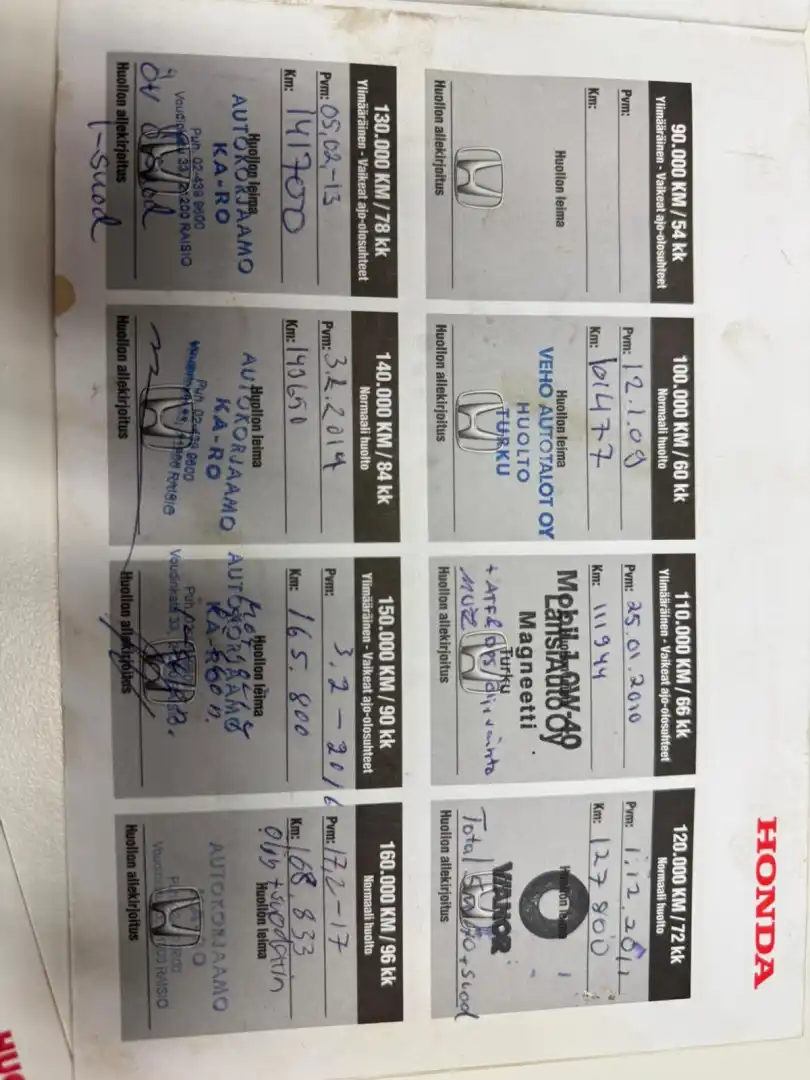 HONDA
90.000 KM / 54 kk
Ylimääräinen - Vaikeat ajo-olosuhteet
Pvm:
Km:
Huollon leima
Huollon allekirjoitus
100.000 KM / 60 kk
Normaali huolto
Pvm: 12.1.09
Km: 101477
Huollon leima
VEHO AUTOTALOT OY
HUOLTO
TURKU
Huollon allekirjoitus
110.000 KM / 66 kk
Ylimääräinen - Vaikeat ajo-olosuhteet
Pvm: 25.01.2010
Km: 111944
Mobil 1 0W-40
Länsiauto Oy
Magneetti
Turku
Huollon allekirjoitus
120.000 KM / 72 kk
Normaali huolto
Pvm: 1.12.2011
Km: 127800
Huollon leima
VIANOR
Total
+suod
Huollon allekirjoitus
130.000 KM / 78 kk
Ylimääräinen - Vaikeat ajo-olosuhteet
Pvm: 05.02-13
Km: 141700
Huollon leima
AUTOKORJAAMO
KA-RO
Puh. 02-439 9600
Voudinkatu 33, 21200 RAISIO
Huollon allekirjoitus
140.000 KM / 84 kk
Normaali huolto
Pvm: 3.2.2014
Km: 149650
Huollon leima
AUTOKORJAAMO
KA-RO
Puh. 02-439 9600
Huollon allekirjoitus
150.000 KM / 90 kk
Ylimääräinen - Vaikeat ajo-olosuhteet
Pvm: 3.2-2016
Km: 165.800
Huollon leima
AUTOKORJAAMO
KA-RO
Huollon allekirjoitus
160.000 KM / 96 kk
Normaali huolto
Pvm: 17.2-17
Km: 168.833
Huollon leima
öljy+suodatin
AUTOKORJAAMO
RAISIO
Huollon allekirjoitus